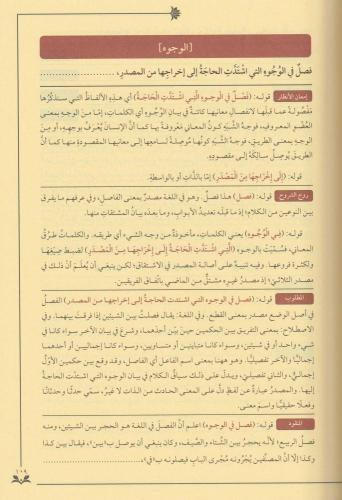 [الوجوه]
فصل في الوُجُوهِ التي اشْتَدَّتِ الحاجَةُ إلى إخراجِها من المصدرِ، ......................
إمعان الأنظار قوله: (فَصْلٌ في الوجوهِ الَّتِي اشْتَدَّتِ الْحَاجَةُ) أي هذِهِ الألفاظُ التي ستذكُرُها
مَفْصُولةٌ عما قبلَها لانفصالِ معانيها كائنةً في بيانِ الوُجُوهِ أي الكلماتِ، إمَّا مِنَ الوجهِ بمعنى
العُضْوِ المعروفِ، فوجهُ الشَّبَهِ كونُ المعاني مَعْروفةً بها كما أنَّ الإنسانَ يُعْرَفُ بوجههِ، أو مِنَ
الوجهِ بمعنى الطريقِ، فوجهُ الشَّبَهِ كونُها مُوصِلةً لسامعِها إلى معانيها المقصودةِ منها كما أنَّ
الطريقَ يُوصِلُ سالِكَهُ إلى مقصودِهِ.
قوله: (إلى إخراجِها مِنَ الْمَصْدَرِ) إمّا بالذّاتِ أو بالواسطةِ.
روح الشروح قوله: (فصل) هذا فصلٌ. وهو في اللغةِ مصدرٌ بمعنى الفاصلِ، وفي عرفهم ما يفرق
بين النوعين من الكلامِ؛ إذ ما قبلَه تعديدُ الأبوابِ، وما بعدَه بيانُ المشتقاتِ منها.
قوله: (في الوُجُوهِ) يعني الكلماتِ، مأخوذةٌ من وجه الشيء؛ أي طريقه. والكلماتُ طُرُقُ
المعاني، فسُمّيَتْ بالوجوهِ (الَّتِي اشْتَدَّتِ الْحَاجَةُ إلى إِخْرَاجِهَا مِنَ الْمَصْدَرِ) لضبطِ صِيَغِها
وكثرةِ فروعِها. وفيه تنبيهٌ على أصالةِ المصدرِ في الاشتقاقِ؛ لكن ينبغي أن يُعْلَمَ أنَّ ذلك في
مصدرِ الثلاثيّ؛ إذ مصدرُ غيرِه مشتقٌّ من الماضي باتّفاقِ الفريقينِ.
المطلوب قوله: (فصل في الوجوه التي اشتدت الحاجةُ إلى إخراجها من المصدر) الفصلُ
في أصلِ الوضعِ مصدرٌ بمعنى القطعِ. وفي اللغة: يقال فصلتُ بين الشيئينِ إذا فرقتَ بينهما. وفي
الاصطلاحِ: بمعنى التفريقِ بين الحكمينِ حينَ بيّن أحدَهما، وشرعَ في بيانِ الآخرِ سواء كانا في
شيءٍ واحدٍ أو في شيئين، وسواء كانا متباينينِ أو متساويينِ، وسواء كانا إجماليينِ أو أحدهما
إجماليًّا والآخرُ تفصيليًّا. وهو هنا بمعنى اسمِ الفاعلِ أي الفاصل، وقد وقع بين حكمينِ الأوّلُ
إجماليّ، والثاني تفصيليّ، ويدلّ على ذلك سياقُ الكلامِ في بيانِ الوجوه التي اشتدّت الحاجةُ
إليها. والمصدرُ عبارةٌ عن لفظٍ دلَّ على المعنى الحادث من الذات لا غيرُ، سمي حدثًا وحدثانًا
وفعلًا حقيقيًّا واسمَ معنى.
المنقود قوله: (فصل في الوجوه) اعلم أنَّ الفصلَ في اللغة هو الحجز بين الشيئين، ومنه
فصل الربيع؛ لأنّه يحجز بين الشّتاء والصّيف، وكان ينبغي أن يوصل بـ«بين»، فيقال بين كذا
وكذا إلا أنَّ المصنّفينَ يُجْرُونَه مُجْرى البابِ فيصلونه بـ«في»،
١٠٩